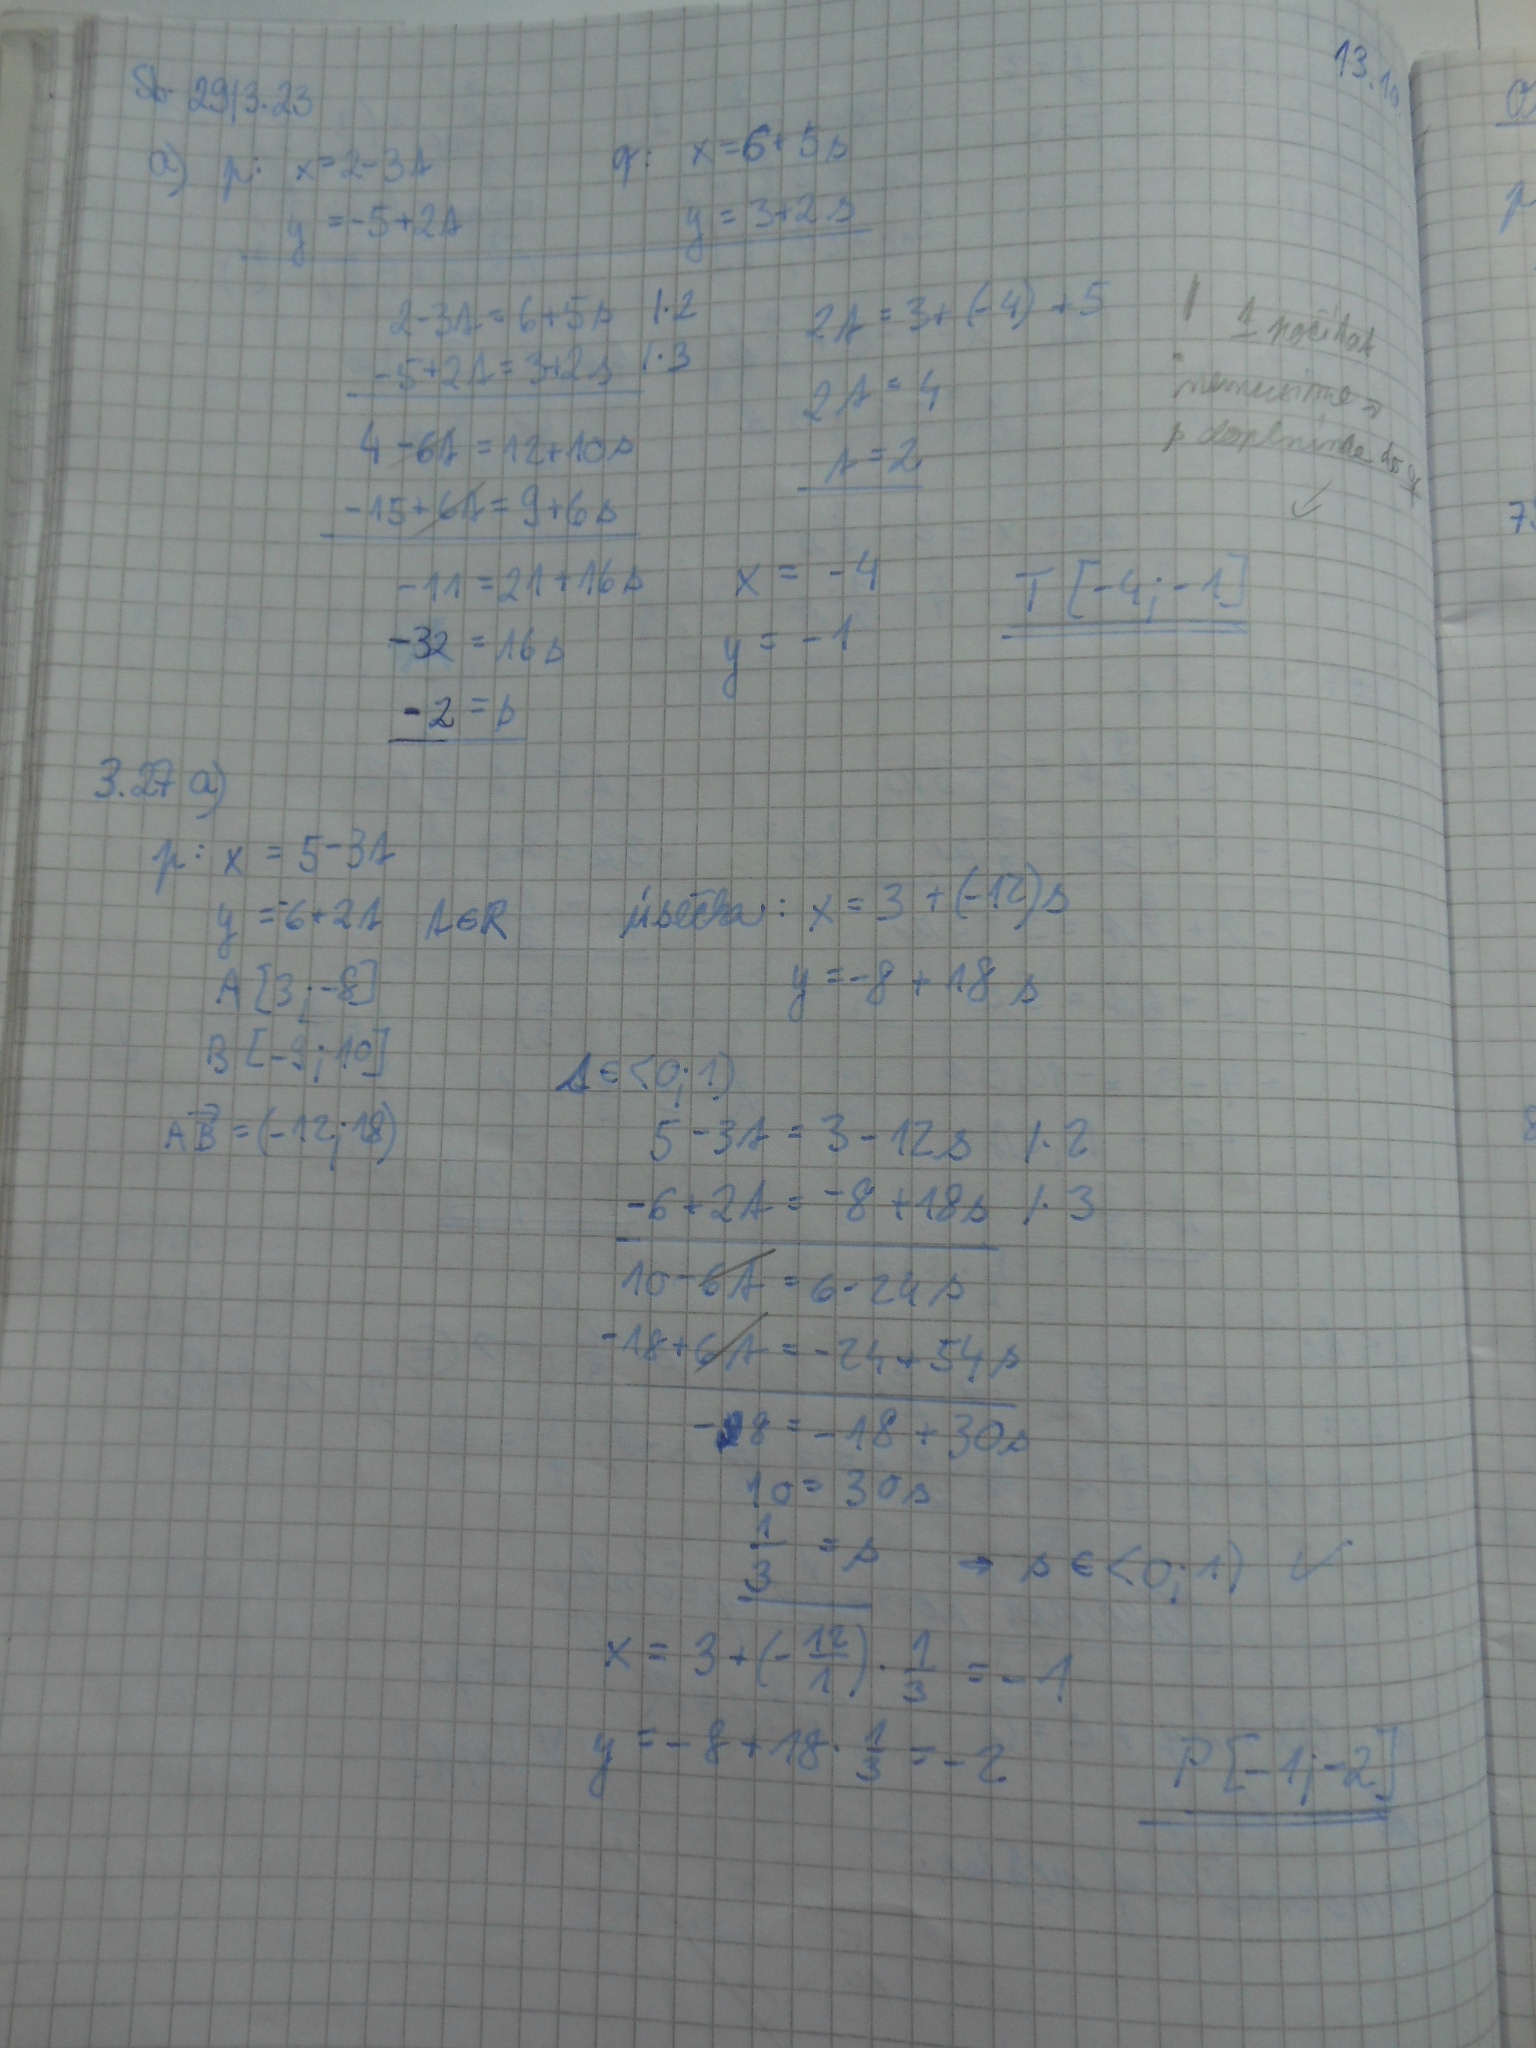 13.10.
Sb. 29/3.23
a) p: x=2-3t q: x=6+5s
y=-5+2t y=3+2s
2-3t=6+5s /·2
-5+2t=3+2s /·3
4-6t=12+10s
-15+6t=9+6s
-11=21+16s
-32=16s
-2=s
2t=3+(-4)+5
2t=4
t=2
x=-4
y=-1
! t počítat
nemusíme
s doplníme do q
T[-4;-1]
3.27 a)
p: x=5-3t
y=-6+2t t∈R
A[3;-8]
B[-9;10]
AB=(-12;18)
úsečka: x=3+(-12)s
y=-8+18s
s∈<0;1)
5-3t=3-12s /·2
-6+2t=-8+18s /·3
10-6t=6-24s
-18+6t=-24+54s
-8=-18+30s
10=30s
1/3=s → s∈<0;1) ✓
x=3+(-12/1)·1/3=-1
y=-8+18·1/3=-2
P[-1;-2]